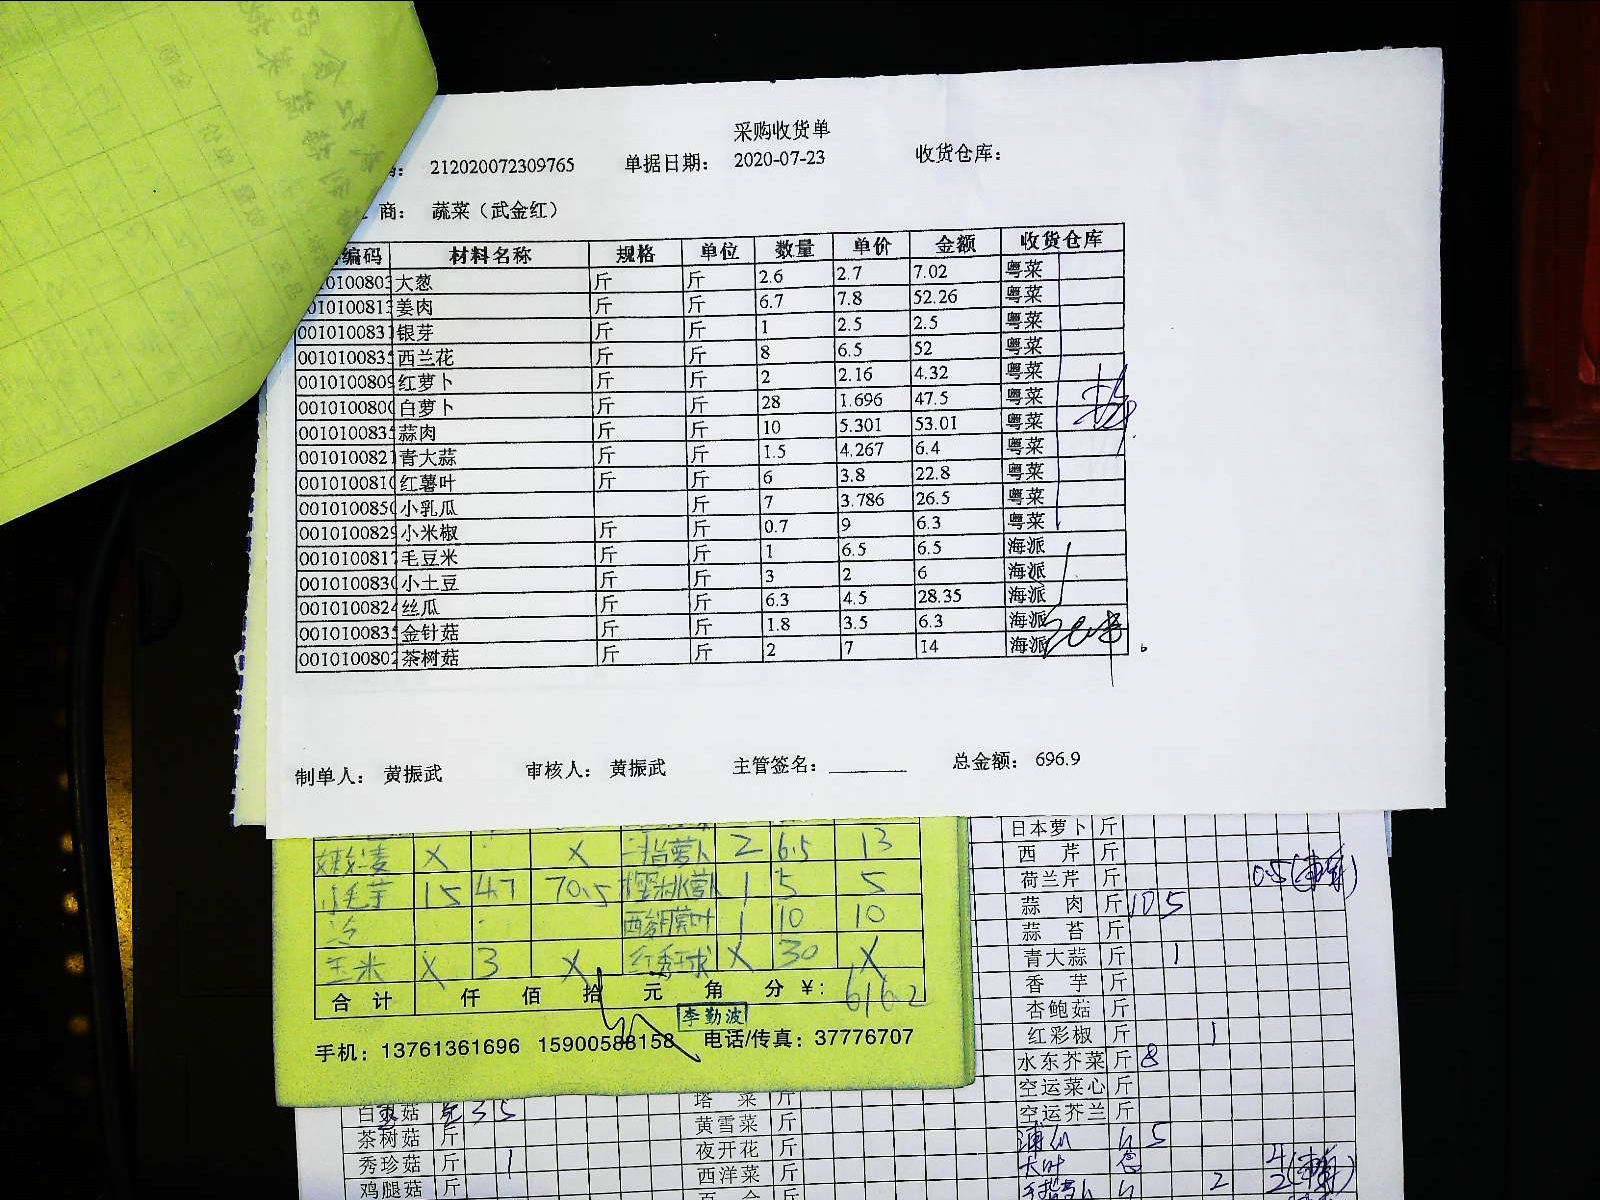 采购收货单
212020072309765 单据日期: 2020-07-23 收货仓库:
商: 蔬菜（武金红）
编码 材料名称 规格 单位 数量 单价 金额 收货仓库
010100803 大葱 斤 斤 2.6 2.7 7.02 粤菜
010100813 姜肉 斤 斤 6.7 7.8 52.26 粤菜
0010100831 银芽 斤 斤 1 2.5 2.5 粤菜
0010100835 西兰花 斤 斤 8 6.5 52 粤菜
0010100809 红萝卜 斤 斤 2 2.16 4.32 粤菜
0010100800 白萝卜 斤 斤 28 1.696 47.5 粤菜
0010100835 蒜肉 斤 斤 10 5.301 53.01 粤菜
0010100821 青大蒜 斤 斤 1.5 4.267 6.4 粤菜
0010100810 红薯叶 斤 斤 6 3.8 22.8 粤菜
0010100850 小乳瓜 斤 7 3.786 26.5 粤菜
0010100829 小米椒 斤 斤 0.7 9 6.3 粤菜
0010100817 毛豆米 斤 斤 1 6.5 6.5 海派
0010100830 小土豆 斤 斤 3 2 6 海派
0010100824 丝瓜 斤 斤 6.3 4.5 28.35 海派
0010100835 金针菇 斤 斤 1.8 3.5 6.3 海派
0010100802 茶树菇 斤 斤 2 7 14 海派
制单人: 黄振武 审核人: 黄振武 主管签名: 总金额: 696.9
X X 萝卜 2 6.5 13
小毛芋 15 47 70.5 1 5 5
1 10 10
玉米 X 3 X X 30 X
合计 仟 佰 拾 元 角 分 ¥: 616.2
李勤波
手机: 13761361696 15900588158 电话/传真: 37776707
日本萝卜 斤
西芹 斤
荷兰芹 斤 0.5
蒜肉 斤 10 5
蒜苔 斤
青大蒜 斤 1
香芋 斤
杏鲍菇 斤
红彩椒 斤 1
水东芥菜 斤 8
空运菜心 斤
空运芥兰 斤
5
大叶 4
2 2
白玉菇 35
茶树菇 斤
秀珍菇 斤 1
鸡腿菇 斤
塔菜 斤
黄雪菜 斤
夜开花 斤
西洋菜 斤
百合 斤